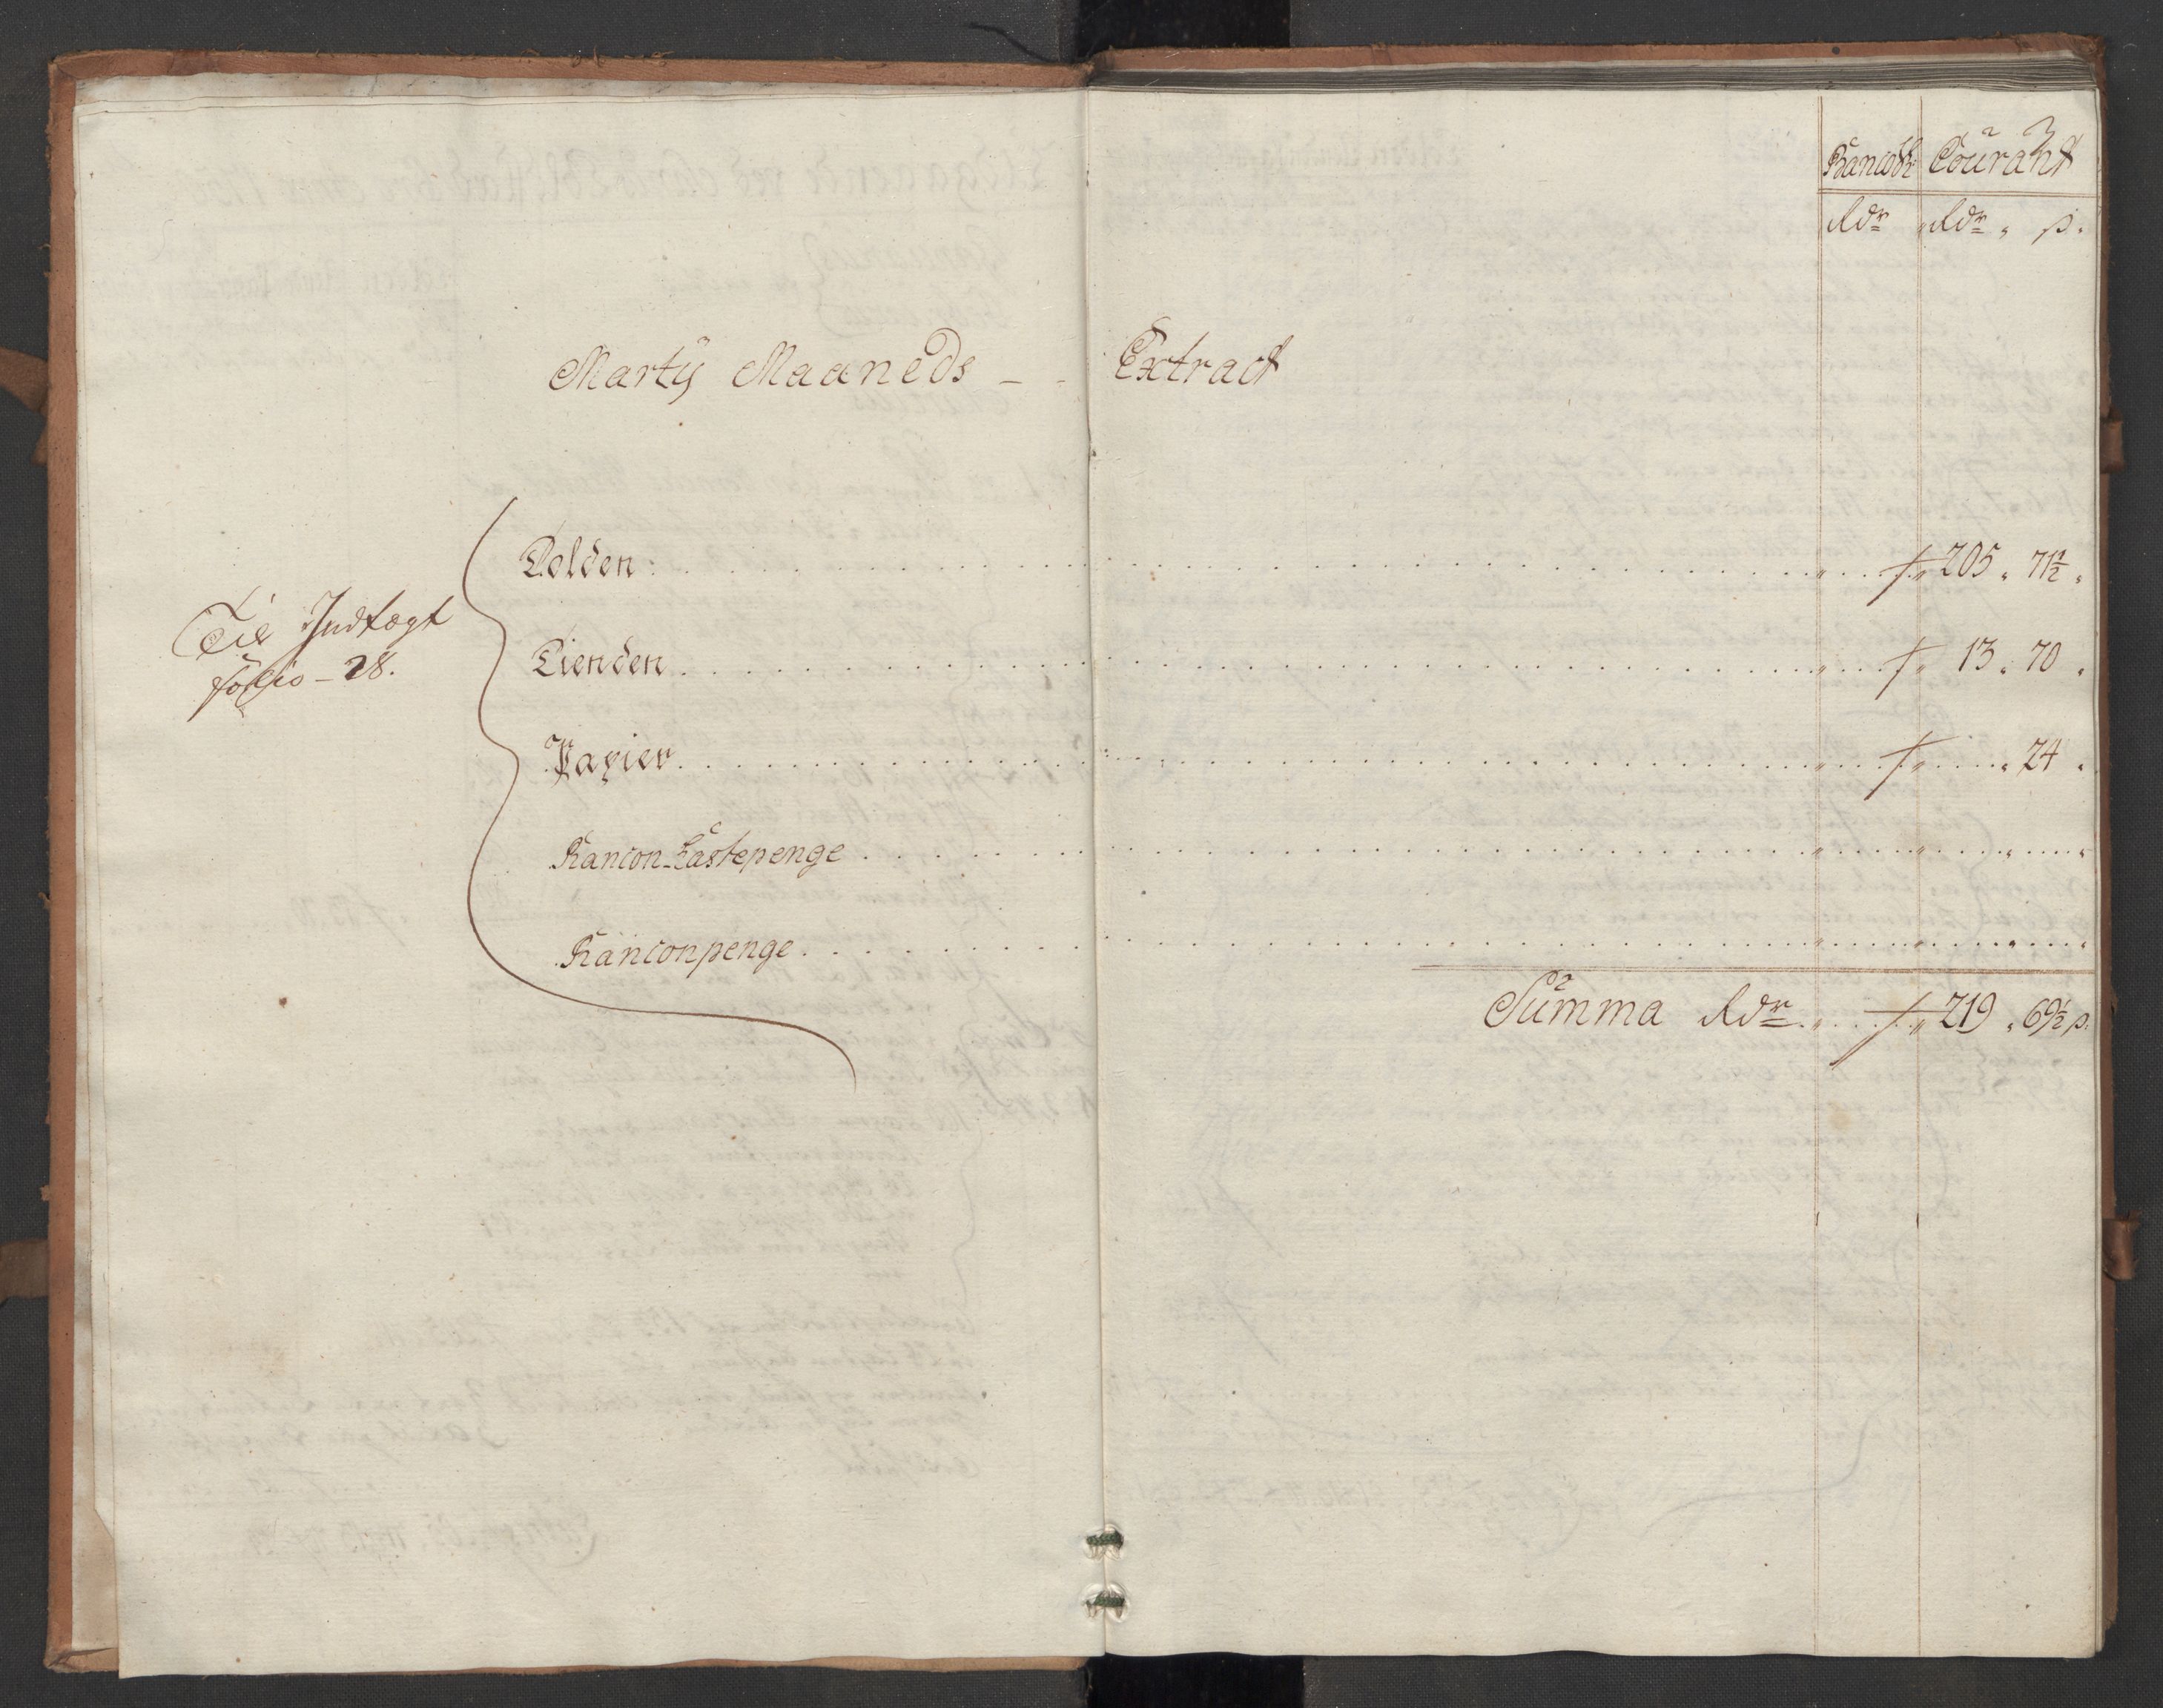 2
Courant
Rdr " Rdr " ß.
Martÿ Maaneds - - Extract
Til Indtægt
folio - 28.
Tolden: . . . " . . . ƒ " 205 " 71½ "
Tienden . . . " . . . ƒ " 13 " 70 "
Papier . . . " . . . ƒ " . . . " 24 "
Rancon-Lastepenge . . . " . . . " . . . " . . . "
Ranconpenge . . . " . . . " . . . " . . . "
Summa Rdr " . . . ƒ " 219 " 69½ ß.